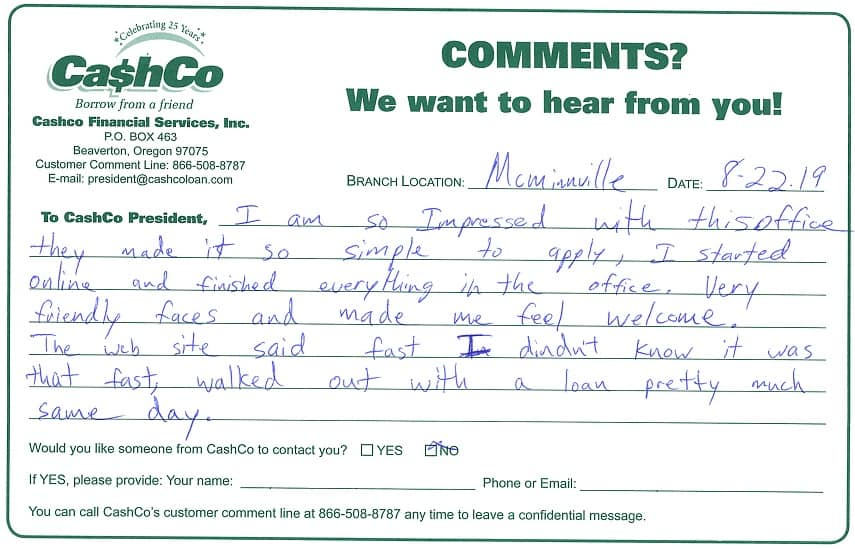 Celebrating 25 Years
Ca$hCo
Borrow from a friend
Cashco Financial Services, Inc.
P.O. BOX 463
Beaverton, Oregon 97075
Customer Comment Line: 866-508-8787
E-mail: president@cashcoloan.com
COMMENTS?
We want to hear from you!
BRANCH LOCATION: Mcminnville DATE: 8-22.19
To CashCo President, I am so Impressed with this office
they made it so simple to apply, I started
online and finished everything in the office. Very
friendly faces and made me feel welcome.
The web site said fast I dindn't know it was
that fast, walked out with a loan pretty much
same day.
Would you like someone from CashCo to contact you? YES NO
If YES, please provide: Your name: Phone or Email:
You can call CashCo's customer comment line at 866-508-8787 any time to leave a confidential message.